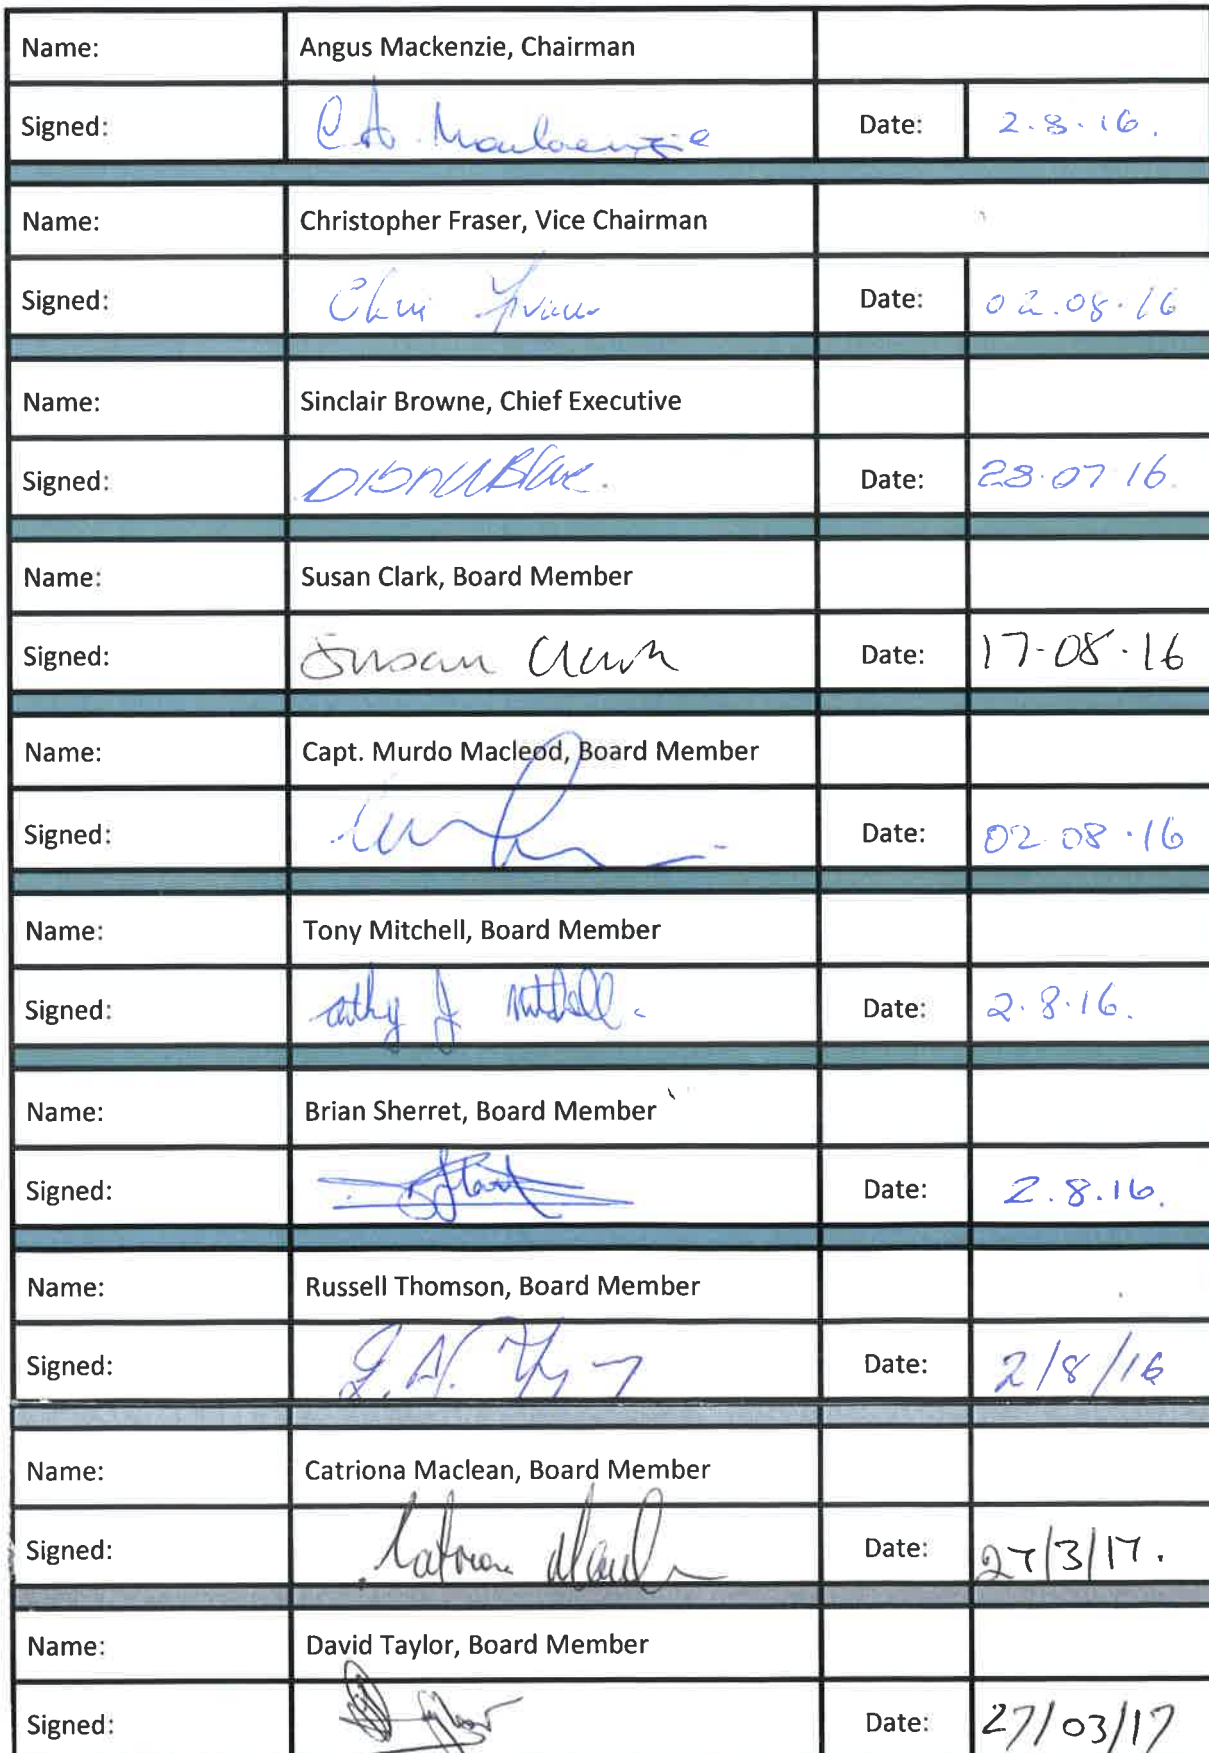 Name: Angus Mackenzie, Chairman
Signed: C A Mackenzie Date: 2.8.16.
Name: Christopher Fraser, Vice Chairman
Signed: Chris Fraser Date: 02.08.16
Name: Sinclair Browne, Chief Executive
Signed: Date: 28.07 16.
Name: Susan Clark, Board Member
Signed: Susan Clark Date: 17-08.16
Name: Capt. Murdo Macleod, Board Member
Signed: Date: 02.08.16
Name: Tony Mitchell, Board Member
Signed: J Mitchell Date: 2.8.16.
Name: Brian Sherret, Board Member
Signed: Date: 2.8.16.
Name: Russell Thomson, Board Member
Signed: Date: 2/8/16
Name: Catriona Maclean, Board Member
Signed: Catriona Maclean Date: 27/3/17.
Name: David Taylor, Board Member
Signed: Date: 27/03/17